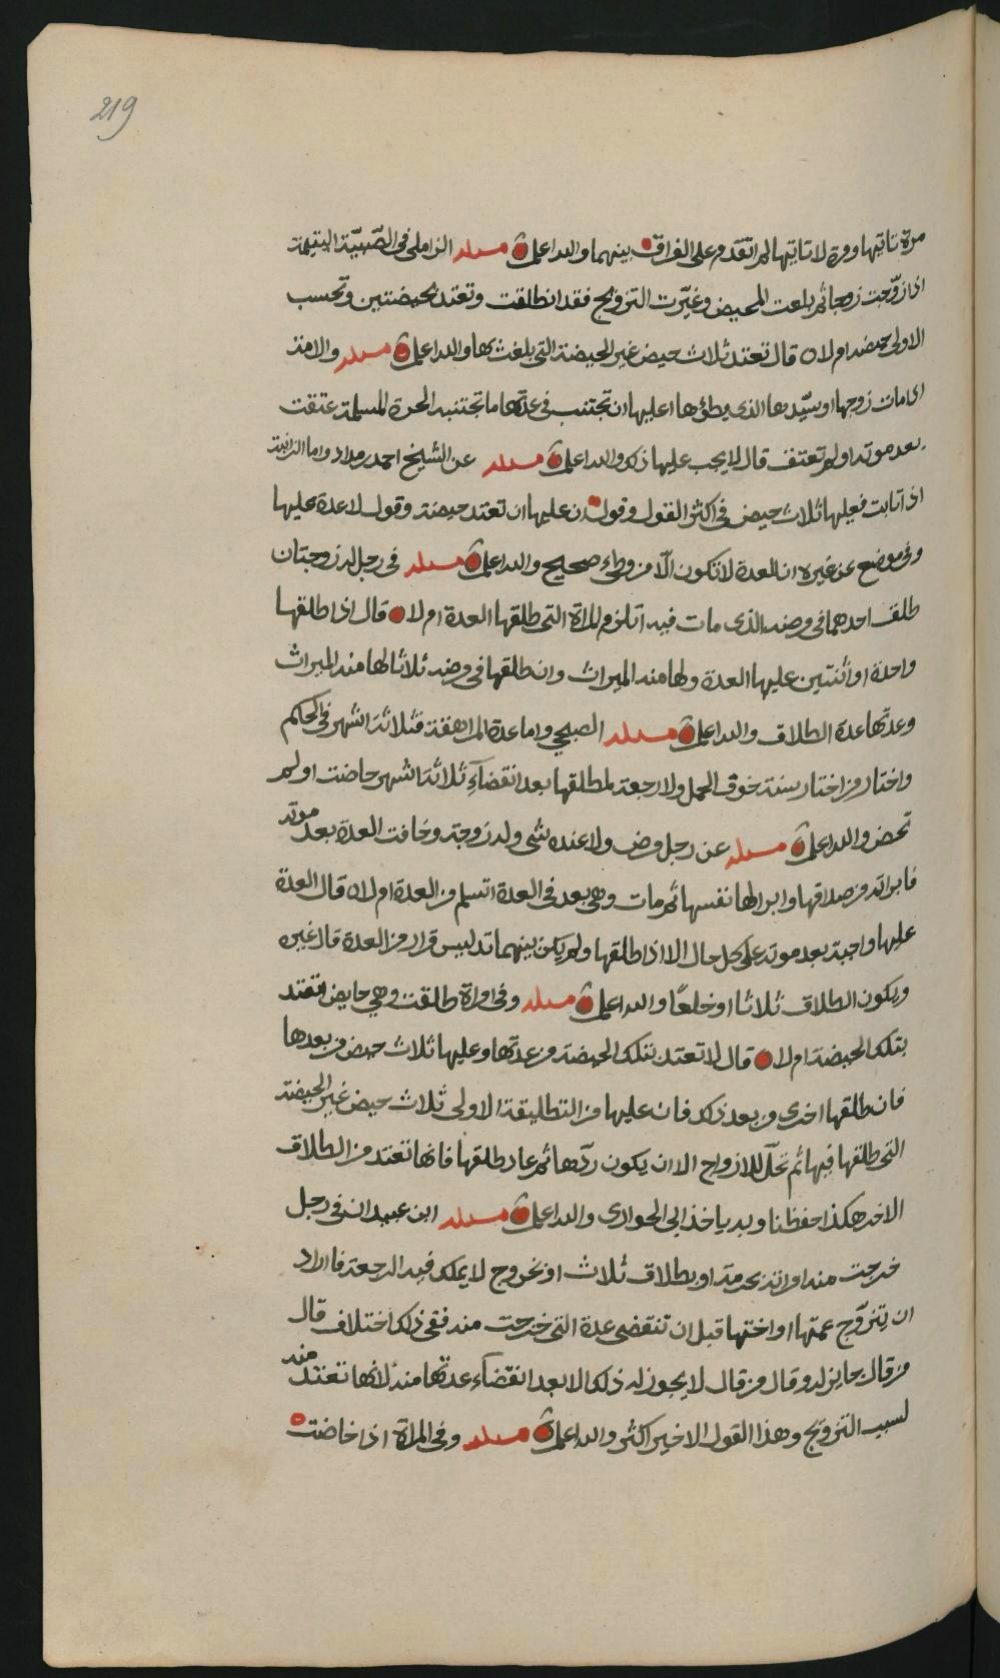 219
مرة تاتيها ومرة لا تاتيها لم اتقدم على الفراق بينهما والله اعلم مسئلة الزاملي في الصبية اليتيمة
اذا زوّجت زوجا ثم بلغت المحيض وغيّرت التزويج فقد انطلقت وتعتد بحيضتين وتحسب
الاولى حيضة ام لا قال تعتد ثلاث حيض غير الحيضة التي بلغت بها والله اعلم مسئلة والامة
اذا مات زوجها او سيّدها الذي يطؤها اعليها ان تجتنب في عدتها ما تجتنبه الحرة المسلمة عتقت
بعد موته او لم تعتق قال لا يجب عليها ذلك والله اعلم مسئلة عن الشيخ احمد بن مداد واما الزانية
اذا تابت فعليها ثلاث حيض في اكثر القول وقول ان عليها ان تعتد حيضة وقول لا عدة عليها
وفي موضع عن غيره ان العدة لا تكون الّا من وطئ صحيح والله اعلم مسئلة في رجل له زوجتان
طلق احدهما في مرضه الذي مات فيه اتلزم المراة التي طلقها العدة ام لا قال اذا طلقها
واحدة او اثنتين عليها العدة ولها منه الميراث وان طلقها في مرضه ثلاثا لها منه الميراث
وعدتها عدة الطلاق والله اعلم مسئلة الصبحي واما عدة المراهقة فثلاثة اشهر في الحكم
واختار من اختار سنة خوف الحمل ولا رجعة لمطلقها بعد انقضآء ثلاثة اشهر حاضت او لم
تحض والله اعلم مسئلة عن رجل مرض ولا عنده شي وله زوجة وخافت العدة بعد موته
فابراته من صداقها وابرا لها نفسها ثم مات وهي بعد في العدة اتسلم من العدة ام لا قال العدة
عليها واجبة بعد موته على كل حال الا اذا طلقها ولم يكن بينهما تدليس قرار من العدة قال غيره
ويكون الطلاق ثلاثا او خلعًا والله اعلم مسئلة وفي امراة طلقت وهي حايض اتعتد
بتلك الحيضة ام لا قال لا تعتد بتلك الحيضة من عدتها وعليها ثلاث حيض من بعدها
فان طلقها اخرى من بعد ذلك فان عليها من التطليقة الاولى ثلاث حيض غير الحيضة
التي طلقها فيها ثم تحلّ للازواج الا ان يكون ردّها ثم عاد طلقها فانها تعتد من الطلاق
الاخر هكذا حفظنا وبه ياخذ ابي الحواري والله اعلم مسئلة ابن عبيدان في رجل
خرجت منه امراته بحرمة او بطلاق ثلاث او بخروج لا يملك فيه الرجعة فاراد
ان يتزوّج عمتها او اختها قبل ان تنقضي عدة التي خرجت منه ففي ذلك اختلاف قال
من قال بجايز له وقال من قال لا يجوز له ذلك الا بعد انقضآء عدتها منه لانها تعتد منه
لسبب التزويج وهذا القول الاخير اكثر والله اعلم مسئلة وفي المراة اذا خاضت